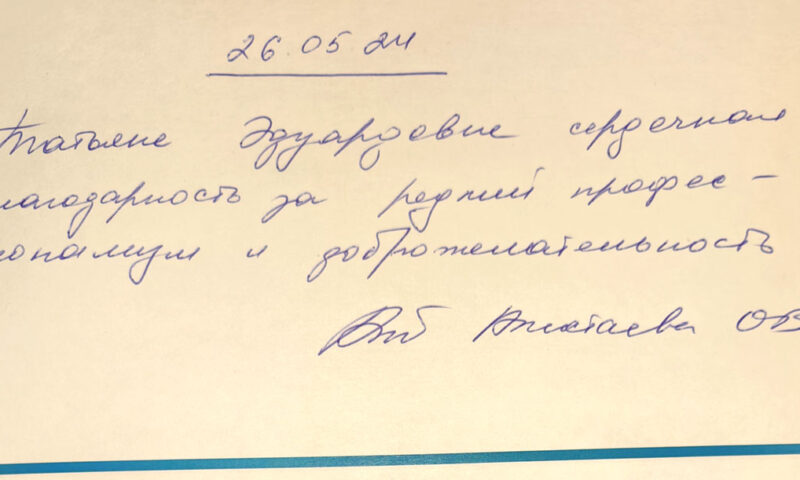 26.05.24
Татьяне Эдуардовне сердечная
лагодарность за редкий профес-
ионализм и доброжелательность
ОВ